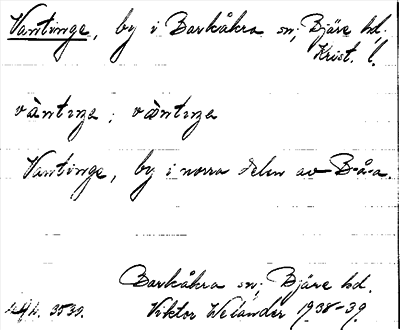 Vantinge, by i Barkåkra sn; Bjäre hd;
Krist. l.
vàntıŋe; vàntıŋe
Vantinge, by i norra delen av B-å-a.
Barkåkra sn; Bjäre hd.
3530. Viktor Welander 1938-39.